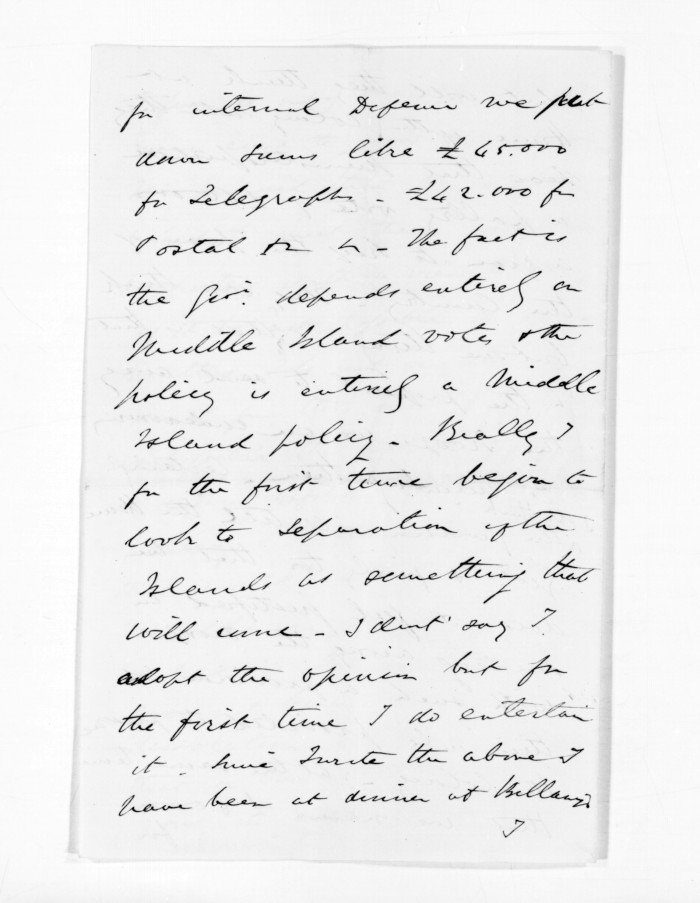 for internal Defence we put
down sums like £45.000
for Telegraphs - £42.000 for
Postal &c &c - The fact is
the Govt. depends entirely on
Middle Island votes & the
policy is entirely a Middle
Island policy - Really I
for the first time begin to
look to Separation of the
Islands as something that
will come - I dont say I
adopt the opinion but for
the first time I do entertain
it - Since I wrote the above I
have been at dinner at Bellamy's
I